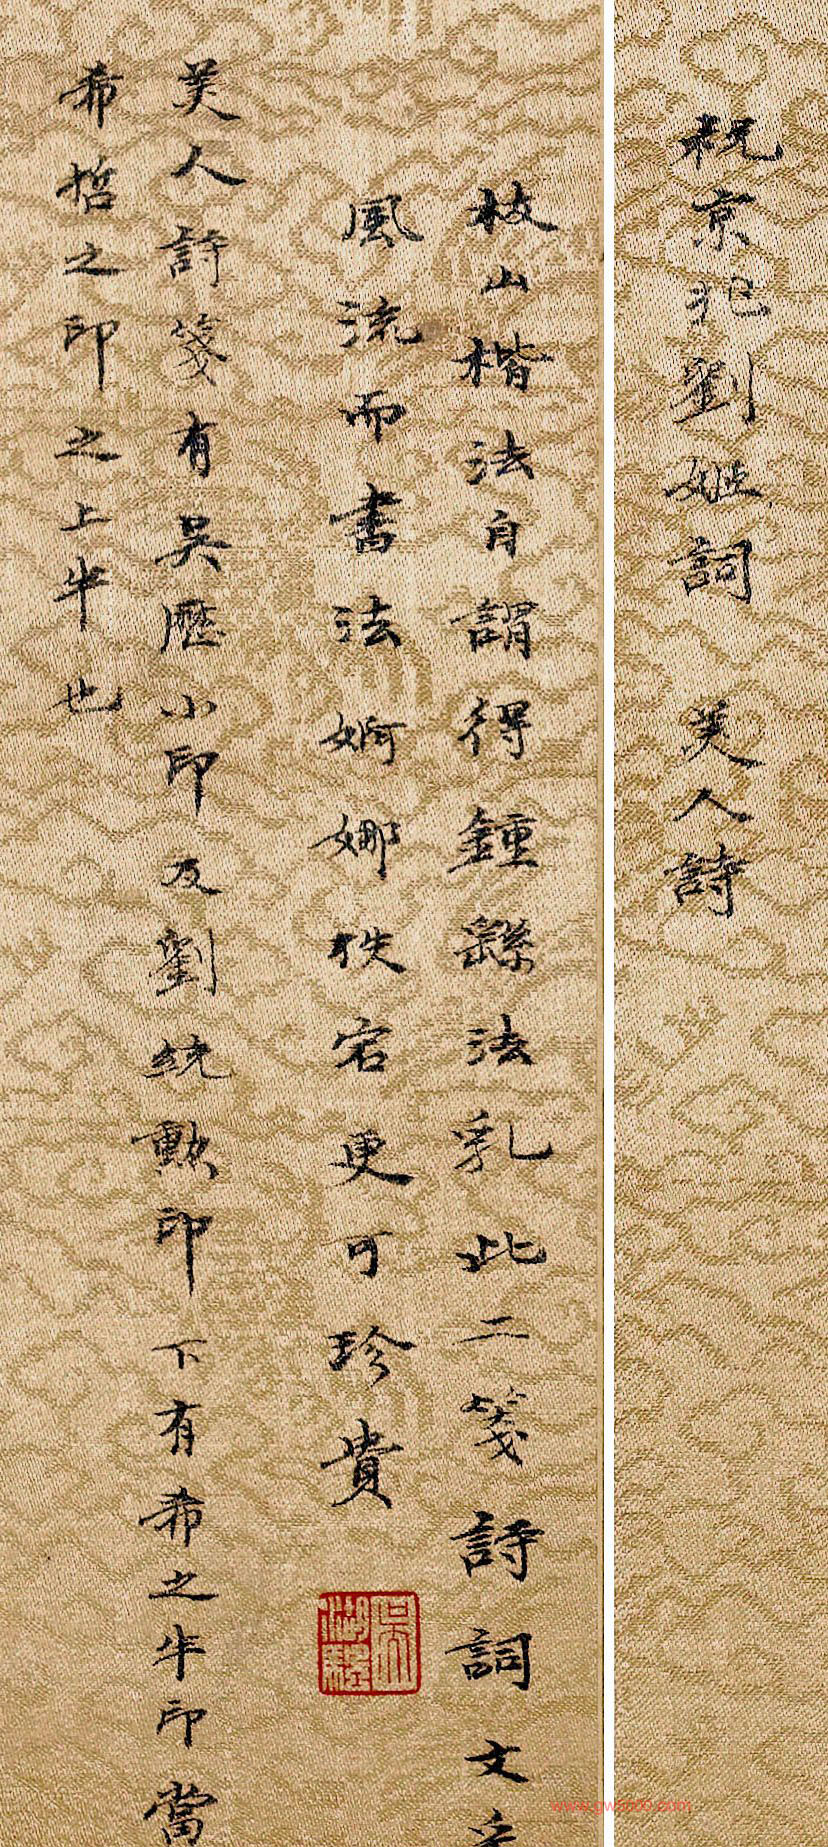 祝京兆劉姬詞　美人詩
枝山楷法自謂得鍾繇法乳此二箋詩詞文采
風流而書法婀娜佚宕更可珍貴
吳湖驊
美人詩箋有吳歷小印及劉統勲印下有希之半印當
希哲之印之上半也
www.gw5000.com